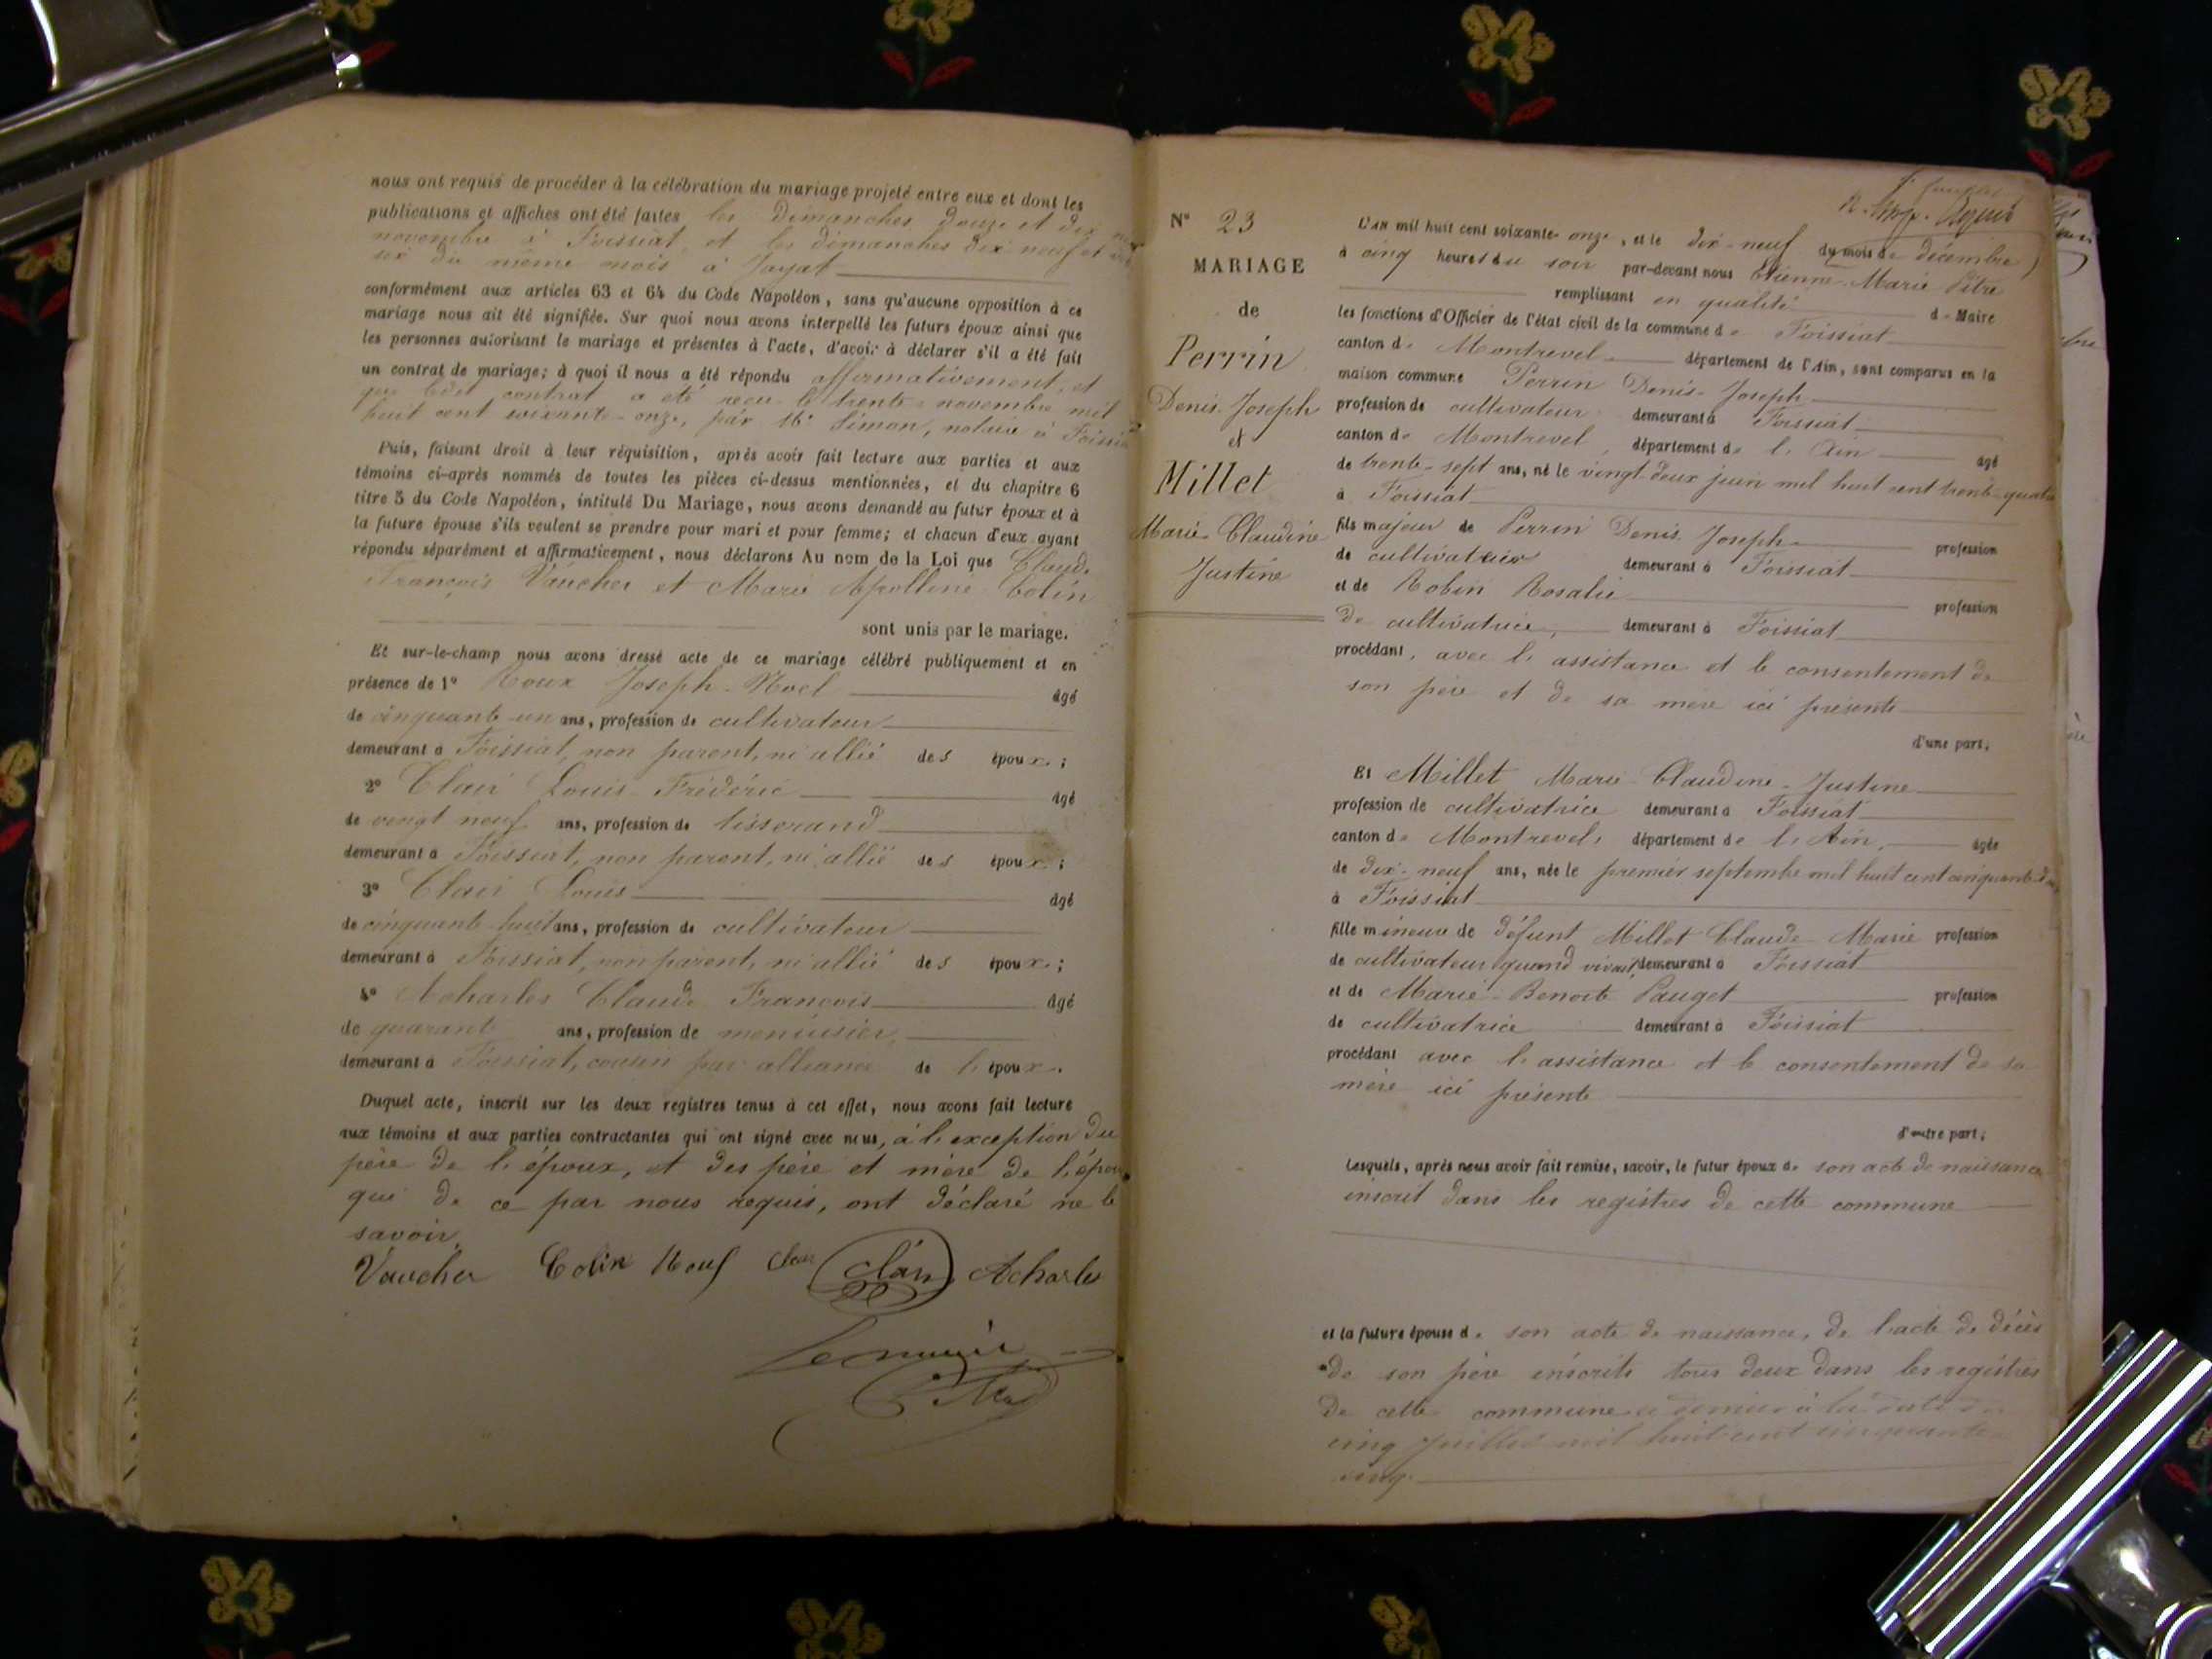 nous ont requis de procéder à la célébration du mariage projeté entre eux et dont les
publications et affiches ont été faites les dimanches douze et dix neuf
novembre à Foissiat et les dimanches dix neuf et
six du même mois à Jayat
conformément aux articles 63 et 64 du Code Napoléon, sans qu'aucune opposition à ce
mariage nous ait été signifiée. Sur quoi nous avons interpellé les futurs époux ainsi que
les personnes autorisant le mariage et présentes à l'acte, d'avoir à déclarer s'il a été fait
un contrat de mariage; à quoi il nous a été répondu affirmativement, et
que ledit contrat a été reçu le trente novembre mil
huit cent soixante-onze, par Me Simon, notaire à Foissiat
Puis, faisant droit à leur réquisition, après avoir fait lecture aux parties et aux
témoins ci-après nommés de toutes les pièces ci-dessus mentionnées, et du chapitre 6
titre 5 du Code Napoléon, intitulé Du Mariage, nous avons demandé au futur époux et à
la future épouse s'ils veulent se prendre pour mari et pour femme; et chacun d'eux ayant
répondu séparément et affirmativement, nous déclarons Au nom de la Loi que Claude
François Vaucher et Marie Apolline Colin
sont unis par le mariage.
Et sur-le-champ nous avons dressé acte de ce mariage célébré publiquement et en
présence de 1° Roux Joseph-Noel âgé
de cinquante-un ans, profession de cultivateur
demeurant à Foissiat, non parent, ni allié des époux;
2° Clair Louis-Frédéric âgé
de vingt neuf ans, profession de tisserand
demeurant à Foissiat, non parent, ni allié des époux;
3° Clair Louis âgé
de cinquante-huit ans, profession de cultivateur
demeurant à Foissiat, non parent, ni allié des époux;
4° Acharles Claude François âgé
de quarante ans, profession de menuisier,
demeurant à Foissiat, cousin par alliance de l'époux.
Duquel acte, inscrit sur les deux registres tenus à cet effet, nous avons fait lecture
aux témoins et aux parties contractantes qui ont signé avec nous, à l'exception du
père de l'époux, et des père et mère de l'épouse
qui de ce par nous requis, ont déclaré ne le
savoir.
Vaucher Colin Roux Clair Clair Acharles
Le maire
Pitre
N° 23
MARIAGE
de
Perrin
Denis-Joseph
et
Millet
Marie-Claudine
Justine
L'an mil huit cent soixante-onze, et le dix-neuf du mois de décembre
à cinq heures du soir par-devant nous Etienne-Marie Pitre
remplissant en qualité de Maire
les fonctions d'Officier de l'état civil de la commune de Foissiat
canton de Montrevel département de l'Ain, sont comparus en la
maison commune Perrin Denis-Joseph
profession de cultivateur demeurant à Foissiat
canton de Montrevel, département de l'Ain âgé
de trente-sept ans, né le vingt-deux juin mil huit cent trente-quatre
à Foissiat
fils majeur de Perrin Denis Joseph profession
de cultivateur demeurant à Foissiat
et de Robin Rosalie profession
de cultivatrice, demeurant à Foissiat
procédant, avec l'assistance et le consentement de
son père et de sa mère ici présente
d'une part;
Et Millet Marie-Claudine-Justine
profession de cultivatrice demeurant à Foissiat
canton de Montrevel, département de l'Ain, âgée
de dix-neuf ans, née le premier septembre mil huit cent cinquante-deux
à Foissiat
fille mineure de défunt Millet Claude-Marie profession
de cultivateur quand vivait demeurant à Foissiat
et de Marie-Benoite Pauget profession
de cultivatrice demeurant à Foissiat
procédant avec l'assistance et le consentement de sa
mère ici présente
d'autre part;
Lesquels, après nous avoir fait remise, savoir, le futur époux de son acte de naissance
inscrit dans les registres de cette commune
et la future épouse de son acte de naissance, de l'acte de décès
de son père inscrits tous deux dans les registres
de cette commune ce dernier à la date du
cinq juillet mil huit cent cinquante
cinq.